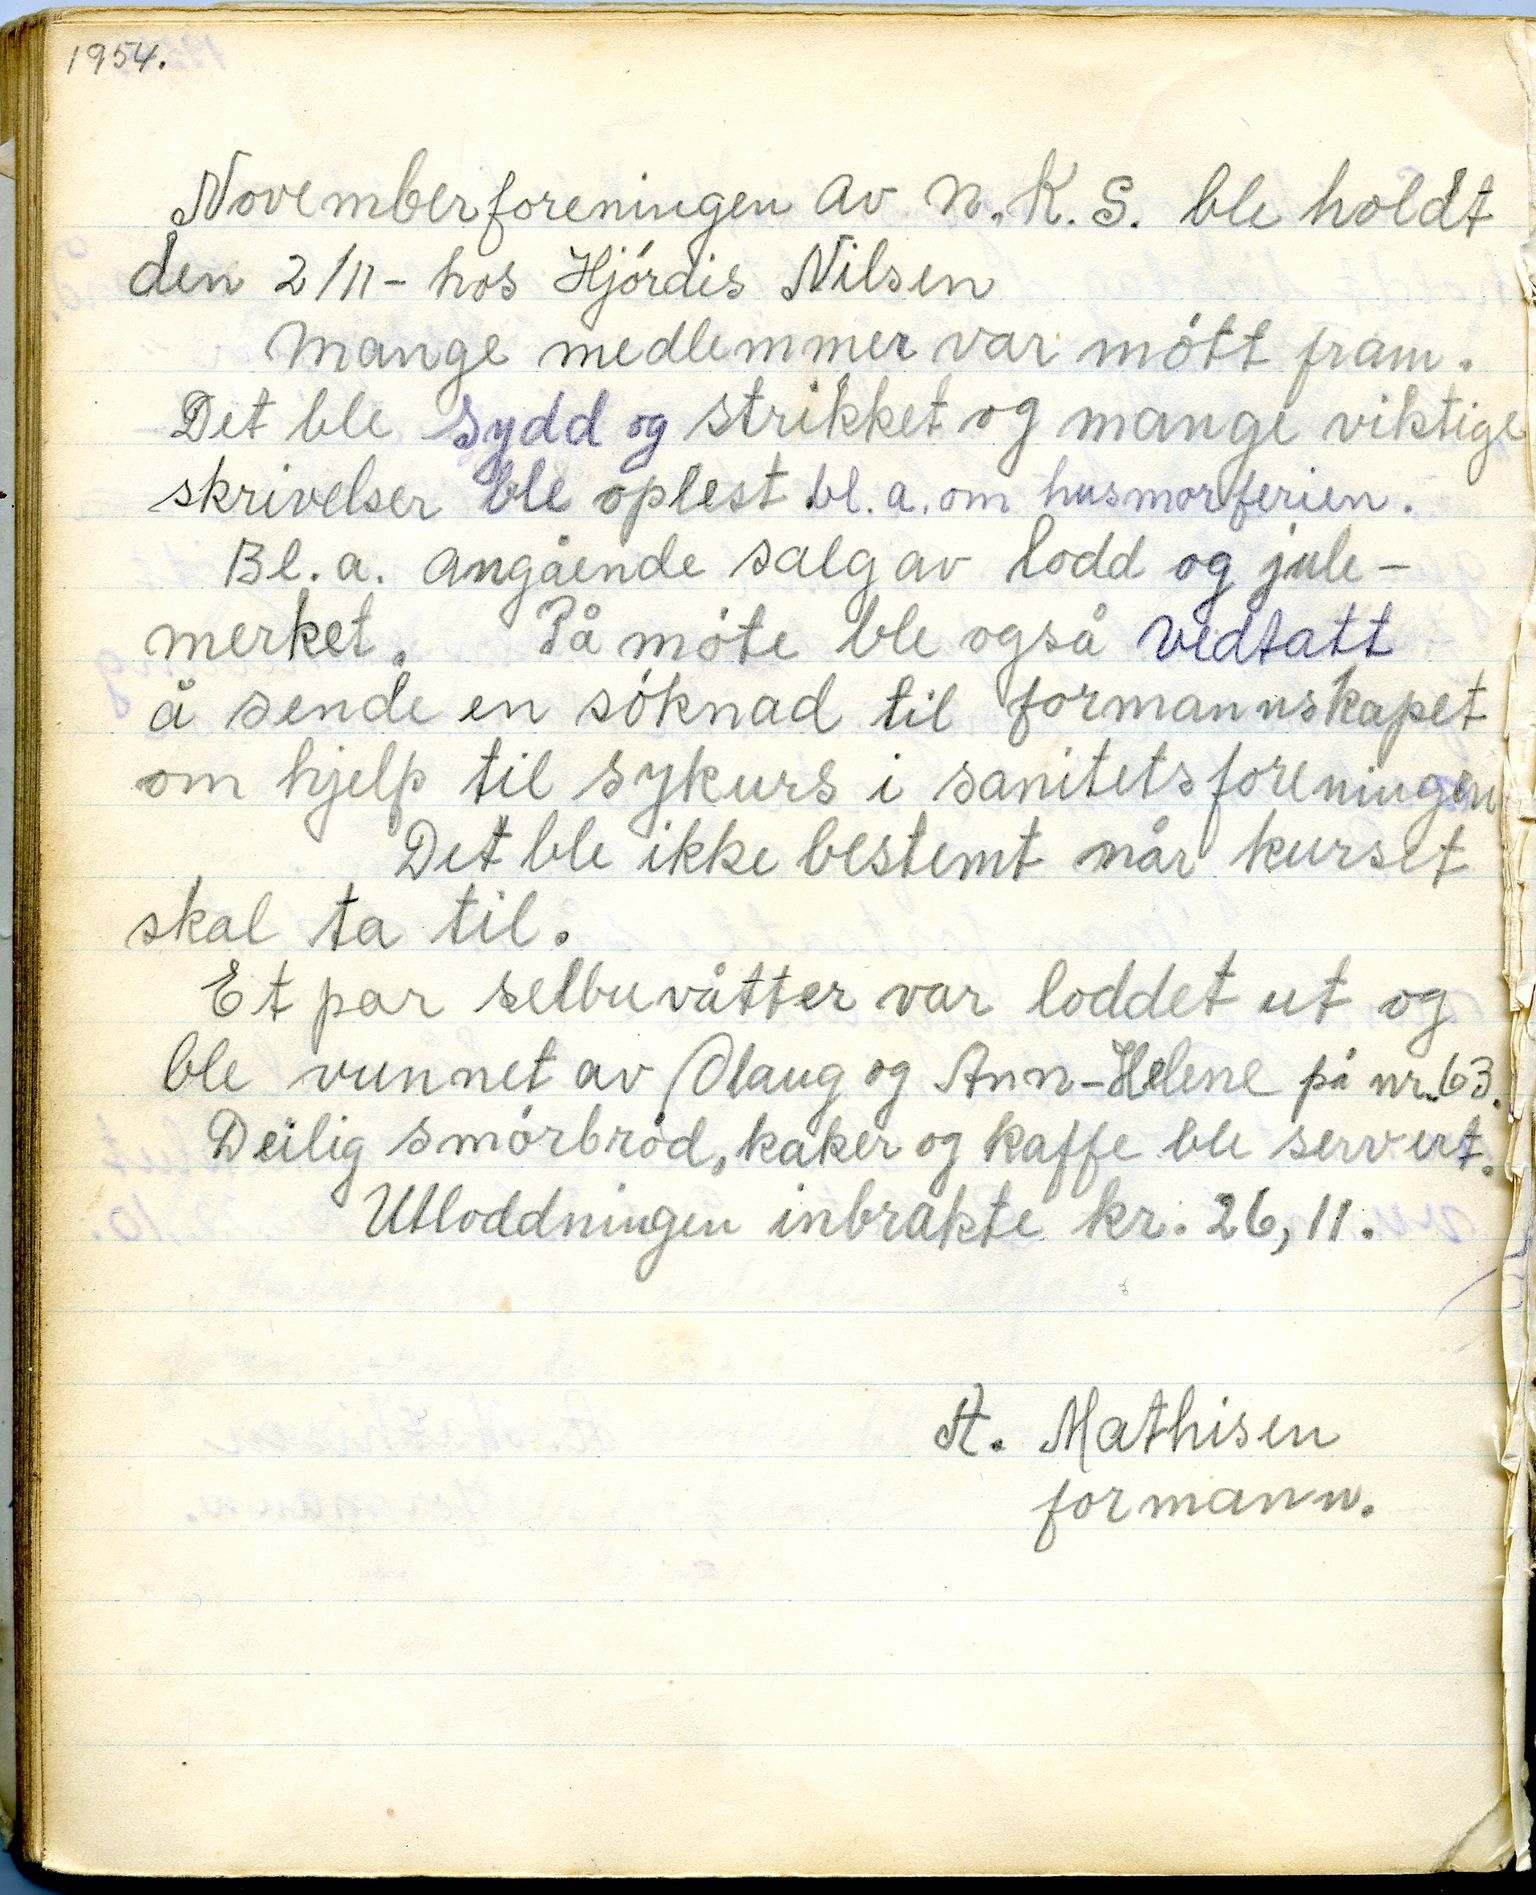 1954.
Novemberforeningen av N.K.S. ble holdt
den 2/11 - hos Hjórdis Nilsen
Mange medlemmer var mótt fram.
Det ble sydd og strikket og mange viktige
skrivelser ble oplest bl.a. om husmorferien.
Bl.a. angående salg av lodd og jule-
merket. På móte ble også vedtatt
å sende en sóknad til formannskapet
om hjelp til sykurs i sanitetsforeningen
Det ble ikke bestemt når kurset
skal ta til.
Et par selbuvåtter var loddet ut og
ble vunnet av Olaug og Ann-Helene på nr. 63.
Deilig smórbród, kaker og kaffe ble servert.
Utloddningen inbrakte kr. 26,11.
A. Mathisen
formann.